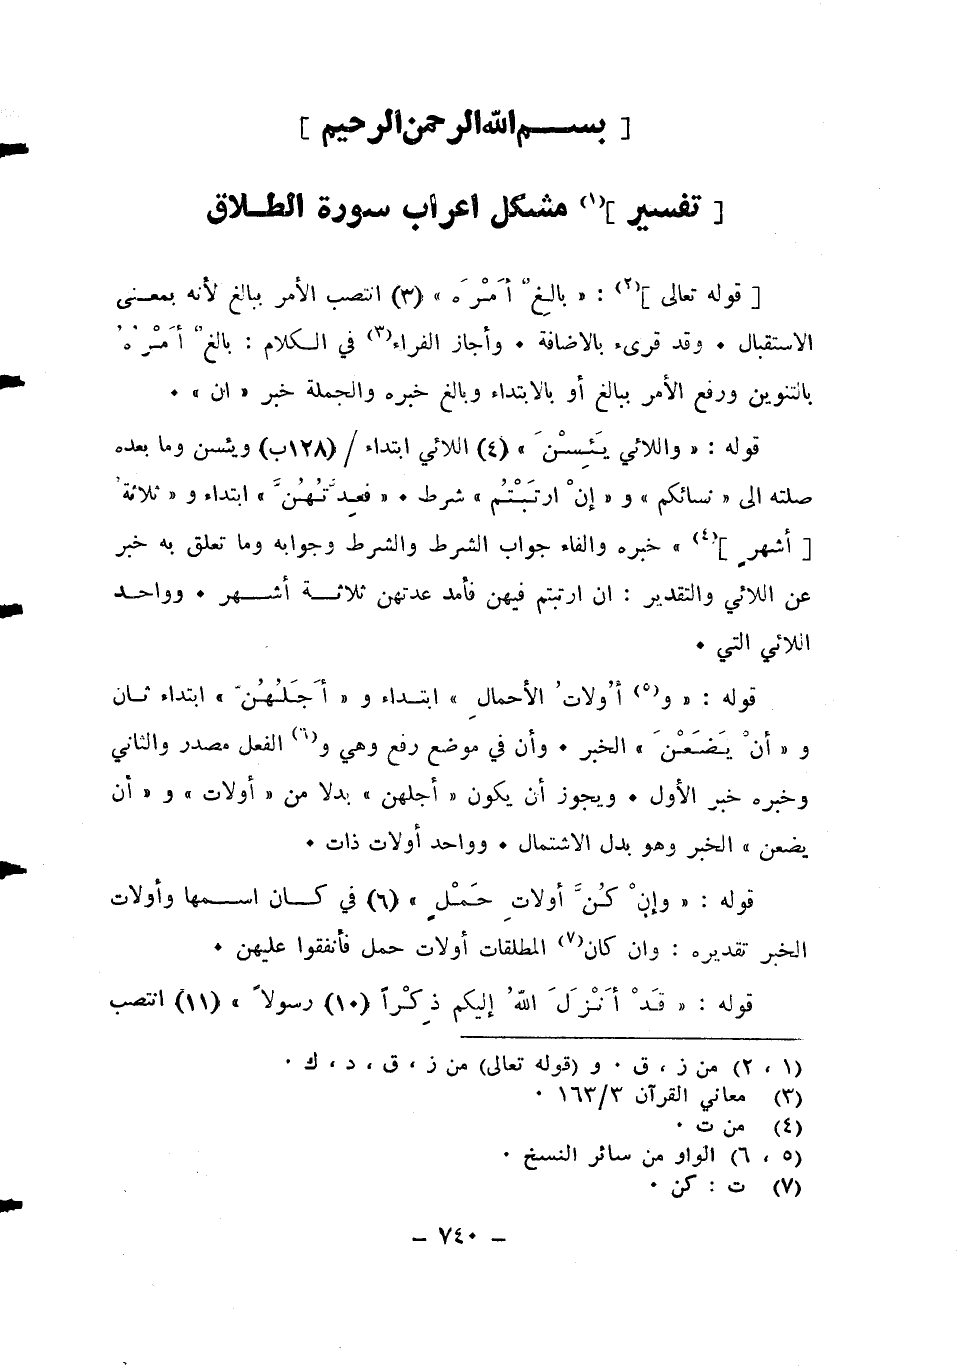 [ بســم الله الرحمن الرحيم ]
[ تفسير ](١) مشكل اعراب سورة الطــلاق
[ قوله تعالى ](٢) : « بالِغٌ أَمْرَه » (٣) انتصب الأمر ببالغ لأنه بمعنــى
الاستقبال ٠ وقد قرىء بالاضافة ٠ وأجاز الفراء(٣) في الــكلام : بالغٌ أَمْرُهُ
بالتنوين ورفع الأمر ببالغ أو بالابتداء وبالغ خبره والجملة خبر « ان » ٠
قوله : « واللائي يَئِسْنَ » (٤) اللائي ابتداء / (١٢٨ب) ويئسن وما بعده
صلته الى « نسائكم » و « إنْ ارتَبْتُم » شرط ٠ « فعِدَّتُهُنَّ » ابتداء و « ثلاثةُ
[ أشهرٍ ](٤) » خبره والفاء جواب الشرط والشرط وجوابه وما تعلق به خبر
عن اللائي والتقدير : ان ارتبتم فيهن فأمد عدتهن ثلاثــة أشــهر ٠ وواحــد
اللائي التي ٠
قوله : « و(٥) أُولاتُ الأحمالِ » ابتــداء و « أَجَلُهُنّ » ابتداء ثــان
و « أنْ يَضَعْنَ » الخبر ٠ وأن في موضع رفع وهي و(٦) الفعل مصدر والثاني
وخبره خبر الأول ٠ ويجوز أن يكون « أجلهن » بدلا من « أولات » و « أن
يضعن » الخبر وهو بدل الاشتمال ٠ وواحد أولات ذات ٠
قوله : « وإنْ كُنَّ أولاتِ حَمْلٍ » (٦) في كــان اســمها وأولات
الخبر تقديره : وان كان(٧) المطلقات أولات حمل فأنفقوا عليهن ٠
قوله : « قَدْ أَنْزَلَ اللهُ إليكم ذِكْراً (١٠) رسولاً » (١١) انتصب
(١ ، ٢) من ز ، ق ٠ و (قوله تعالى) من ز ، ق ، د ، ك ٠
(٣) معاني القرآن ١٦٣/٣ ٠
(٤) من ت ٠
(٥ ، ٦) الواو من سائر النسخ ٠
(٧) ت : كن ٠
– ٧٤٠ –